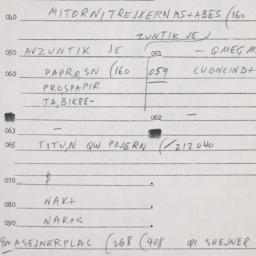 040 MITORN, TRESKERN MS+ABES (160
ZUNTIK JE)
050 AVZUNTIK JE 052 - QMEG M
060 PAPRO, SN (160 059 CUONCIND+
PROSPAPIR
TA, BIKPE-
062 -
063 -
065 TITUN QW POJERN (/212040
070 $
080 NAK+
090 NAK+S
900 ASEJNERPLAC (268 (408 QI SHEJNER